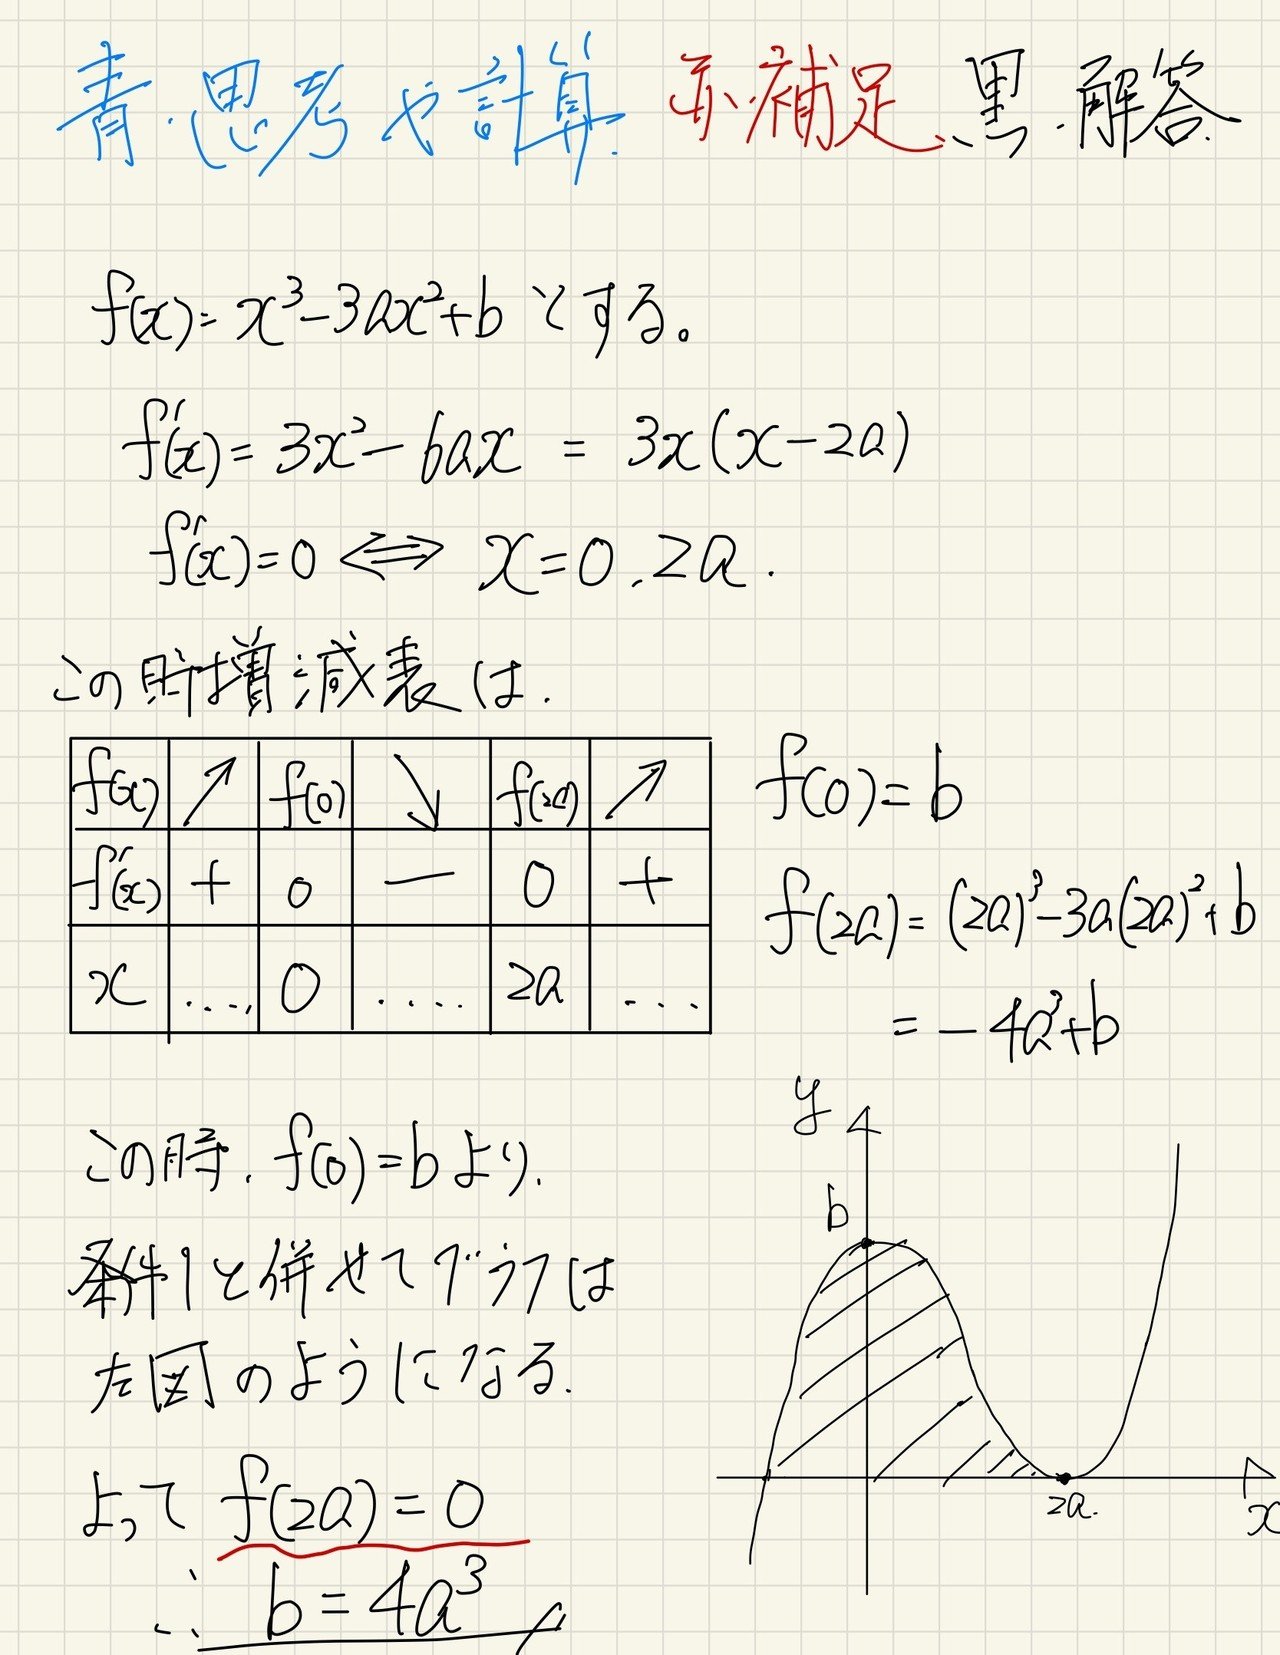 青.思考や計算 赤.補足、黒.解答.
f(x)=x³-3ax²+bとする。
f'(x)=3x²-6ax = 3x(x-2a)
f'(x)=0⟺x=0,2a.
この時増減表は.
f(x) ↗ f(0) ↘ f(2a) ↗
f'(x) + 0 − 0 +
x ... 0 .... 2a ...
f(0)=b
f(2a)=(2a)³-3a(2a)²+b
=-4a³+b
この時.f(0)=bより.
条件1と併せてグラフは
左図のようになる.
よって f(2a)=0
∴ b=4a³
y
b
2a.
x